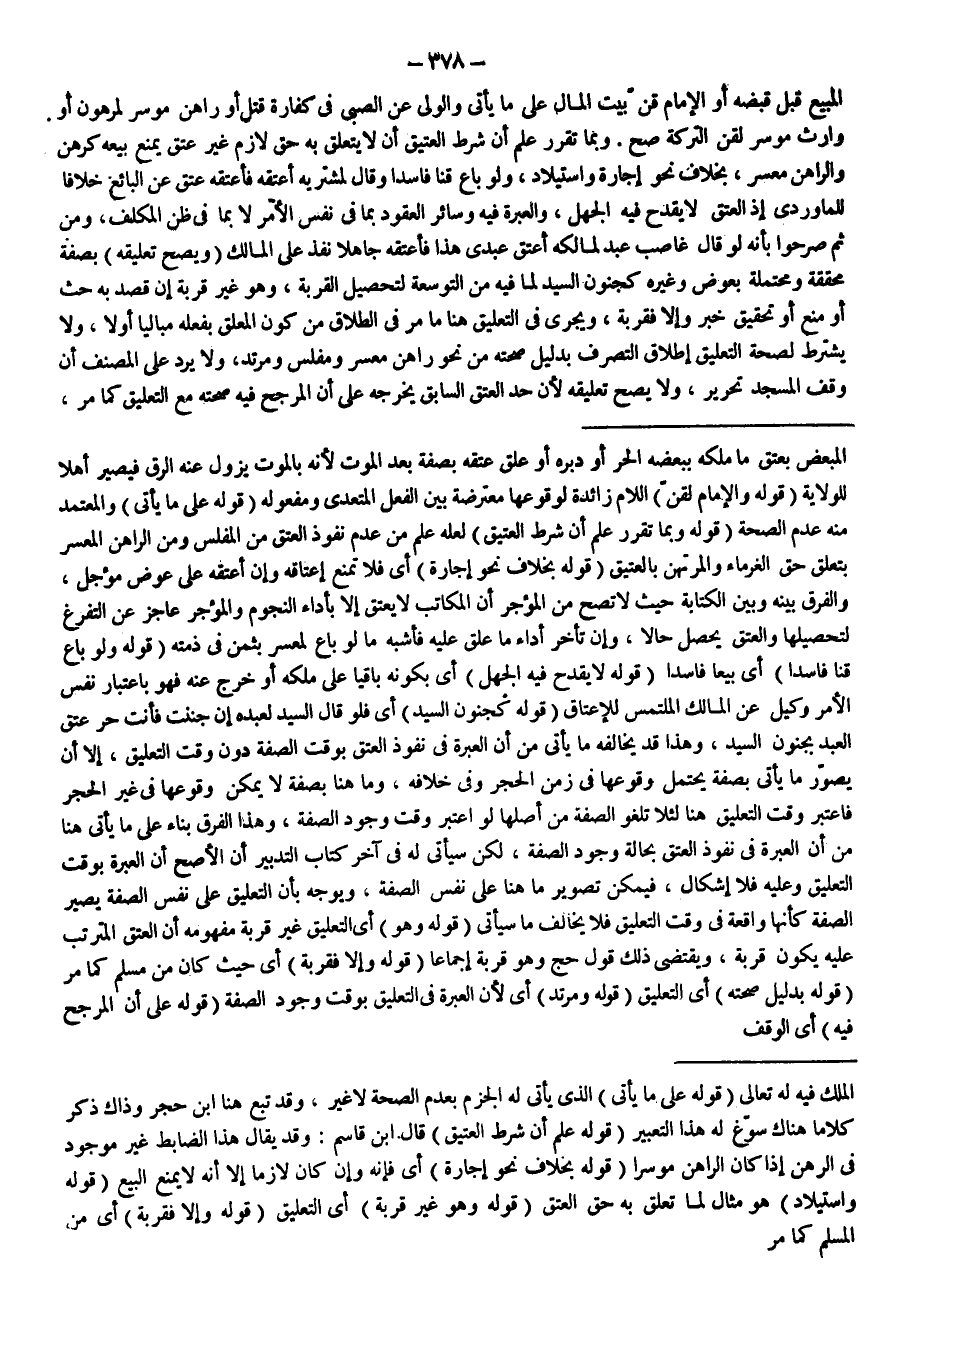 - ٣٧٨ -
المبيع قبل قبضه أو الإمام قنّ بيت المال على ما يأتى والولى عن الصبى فى كفارة قتل أو راهن موسر لمرهون أو
وارث موسر لقن التركة صح . وبما تقرر علم أن شرط العتيق أن لا يتعلق به حق لازم غير عتق يمنع بيعه كرهن
والراهن معسر ، بخلاف نحو إجارة واستيلاد ، ولو باع قنا فاسدا وقال لمشتريه أعتقه فأعتقه عتق عن البائع خلافا
للماوردى إذ العتق لا يقدح فيه الجهل ، والعبرة فيه وسائر العقود بما فى نفس الأمر لا بما فى ظن المكلف ، ومن
ثم صرحوا بأنه لو قال غاصب عبد لمالكه أعتق عبدى هذا فأعتقه جاهلا نفذ على المالك ( ويصح تعليقه ) بصفة
محققة ومحتملة بعوض وغيره كجنون السيد لما فيه من التوسعة لتحصيل القربة ، وهو غير قربة إن قصد به حث
أو منع أو تحقيق خبر وإلا فقربة ، ويجرى فى التعليق هنا ما مر فى الطلاق من كون المعلق بفعله مباليا أولا ، ولا
يشترط لصحة التعليق إطلاق التصرف بدليل صحته من نحو راهن معسر ومفلس ومرتد ، ولا يرد على المصنف أن
وقف المسجد تحرير ، ولا يصح تعليقه لأن حد العتق السابق يخرجه على أن المرجح فيه صحته مع التعليق كما مر ،
المبعض بعتق ما ملكه ببعضه الحر أو دبره أو علق عتقه بصفة بعد الموت لأنه بالموت يزول عنه الرق فيصير أهلا
للولاية ( قوله والإمام لقنّ ) اللام زائدة لوقوعها معترضة بين الفعل المتعدى ومفعوله ( قوله على ما يأتى ) والمعتمد
منه عدم الصحة ( قوله وبما تقرر علم أن شرط العتيق ) لعله علم من عدم نفوذ العتق من المفلس ومن الراهن المعسر
بتعلق حق الغرماء والمرتهن بالعتيق ( قوله بخلاف نحو إجارة ) أى فلا تمنع إعتاقه وإن أعتقه على عوض مؤجل ،
والفرق بينه وبين الكتابة حيث لا تصح من المؤجر أن المكاتب لا يعتق إلا بأداء النجوم والمؤجر عاجز عن التفرغ
لتحصيلها والعتق يحصل حالا ، وإن تأخر أداء ما علق عليه فأشبه ما لو باع لمعسر بثمن فى ذمته ( قوله ولو باع
قنا فاسدا ) أى بيعا فاسدا ( قوله لا يقدح فيه الجهل ) أى بكونه باقيا على ملكه أو خرج عنه فهو باعتبار نفس
الأمر وكيل عن المالك الملتمس للإعتاق ( قوله كجنون السيد ) أى فلو قال السيد لعبده إن جننت فأنت حر عتق
العبد بجنون السيد ، وهذا قد يخالفه ما يأتى من أن العبرة فى نفوذ العتق بوقت الصفة دون وقت التعليق ، إلا أن
يصوّر ما يأتى بصفة يحتمل وقوعها فى زمن الحجر وفى خلافه ، وما هنا بصفة لا يمكن وقوعها فى غير الحجر
فاعتبر وقت التعليق هنا لئلا تلغو الصفة من أصلها لو اعتبر وقت وجود الصفة ، وهذا الفرق بناء على ما يأتى هنا
من أن العبرة فى نفوذ العتق بحالة وجود الصفة ، لكن سيأتى له فى آخر كتاب التدبير أن الأصح أن العبرة بوقت
التعليق وعليه فلا إشكال ، فيمكن تصوير ما هنا على نفس الصفة ، ويوجه بأن التعليق على نفس الصفة يصير
الصفة كأنها واقعة فى وقت التعليق فلا يخالف ما سيأتى ( قوله وهو ) أى التعليق غير قربة مفهومه أن العتق المترتب
عليه يكون قربة ، ويقتضى ذلك قول حج وهو قربة إجماعا ( قوله وإلا فقربة ) أى حيث كان من مسلم كما مر
( قوله بدليل صحته ) أى التعليق ( قوله ومرتد ) أى لأن العبرة فى التعليق بوقت وجود الصفة ( قوله على أن المرجح
فيه ) أى الوقف
الملك فيه له تعالى ( قوله على ما يأتى ) الذى يأتى له الجزم بعدم الصحة لاغير ، وقد تبع هنا ابن حجر وذاك ذكر
كلاما هناك سوّغ له هذا التعبير ( قوله علم أن شرط العتيق ) قال ابن قاسم : وقد يقال هذا الضابط غير موجود
فى الرهن إذا كان الراهن موسرا ( قوله بخلاف نحو إجارة ) أى فإنه وإن كان لازما إلا أنه لا يمنع البيع ( قوله
واستيلاد ) هو مثال لما تعلق به حق العتق ( قوله وهو غير قربة ) أى التعليق ( قوله وإلا فقربة ) أى من
المسلم كما مر